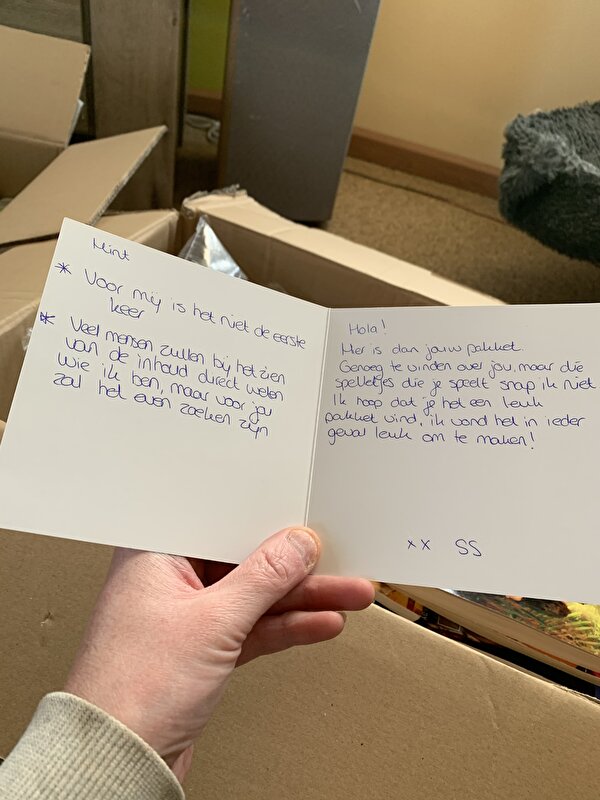 Hint
* Voor mij is het niet de eerste
keer
* Veel mensen zullen bij het zien
van de inhoud direct weten
wie ik ben, maar voor jou
zal het even zoeken zijn
Hola!
Hier is dan jouw pakket.
Genoeg te vinden over jou, maar die
spelletjes die je speelt snap ik niet.
Ik hoop dat je het een leuk
pakket vind, ik vond het in ieder
geval leuk om te maken!
xx SS